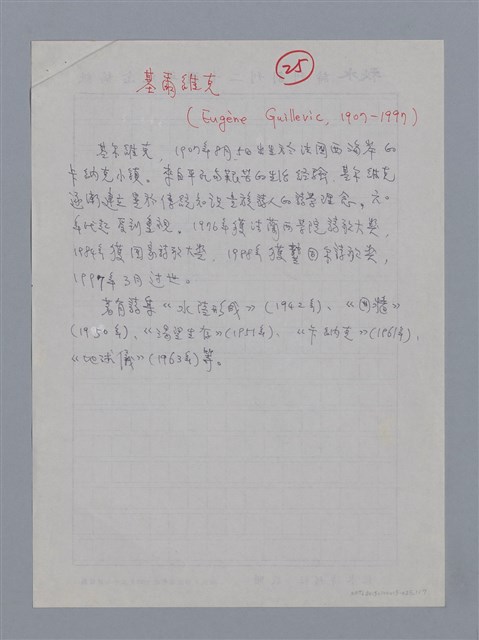 25
基爾維克
(Eugène Guillevic, 1907-1997)
基爾維克, 1907年8月5日出生於法國西海岸的
卡納克小鎮。來自平凡而艱苦的生活經驗, 基爾維克
逐漸建立異於傳統和說童族詩人的詩學理念。六
年代起受到重視。1976年獲法蘭西學院詩歌大獎,
1984年獲國家詩歌大獎, 1988年獲龔固爾詩歌獎,
1997年3月過世。
著有詩集“水陸形成”(1942年)、“圍牆”
(1950年)、“渴望生存”(1951年)、“卡納克”(1961年)、
“地球儀”(1963年)等。